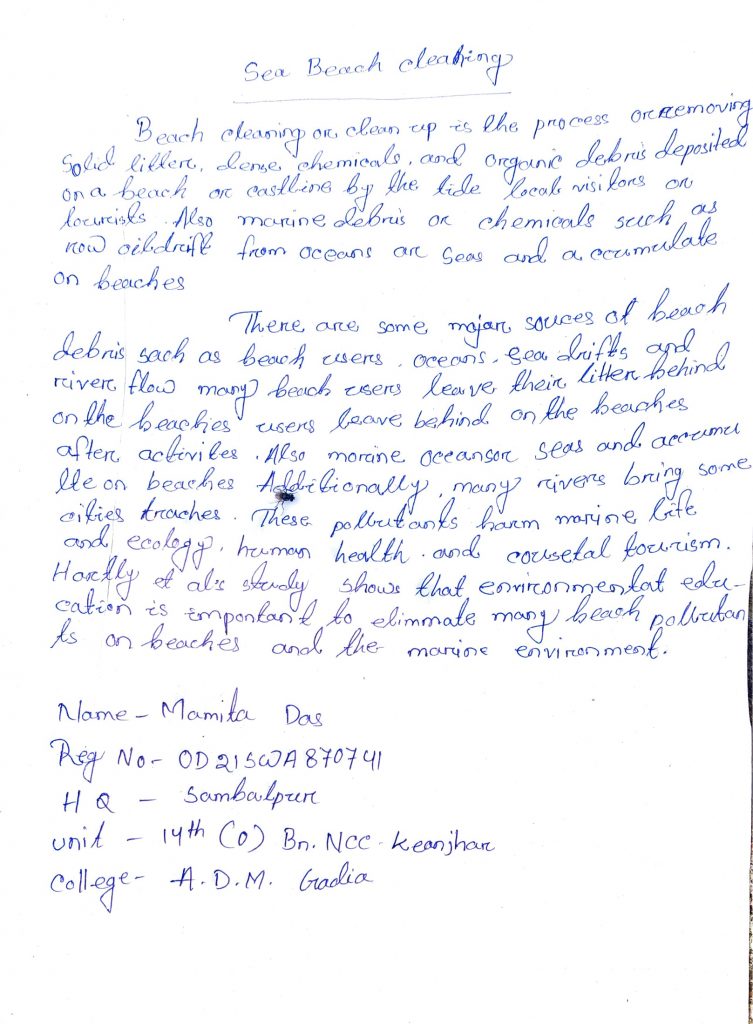 Sea Beach cleaning
Beach cleaning or clean up is the process or removing
Solid litter, dense chemicals, and organic debris deposited
on a beach or castline by the tide local visitors or
tourists. Also marine debris or chemicals such as
row oil drift from oceans or seas and accumulate
on beaches
There are some major souces of beach
debris sach as beach users, oceans, sea drifts and
river flow many beach users leave their litter behind
on the beaches users leave behind on the beaches
after activites. Also morine oceansor seas and accumu
lte on beaches Additionally, many rivers bring some
cities traches. These pollutants harm marine life
and ecology, human health and cousetal tourism.
Hartly et al's study shows that environmental edu-
cation is important to elimmate many beach pollutan
ts on beaches and the marine environment.
Name - Mamita Das
Reg No - OD21SWA870741
H Q - Sambalpur
unit - 14th (O) Bn. NCC Keanjhar
College - A.D.M. Gadia